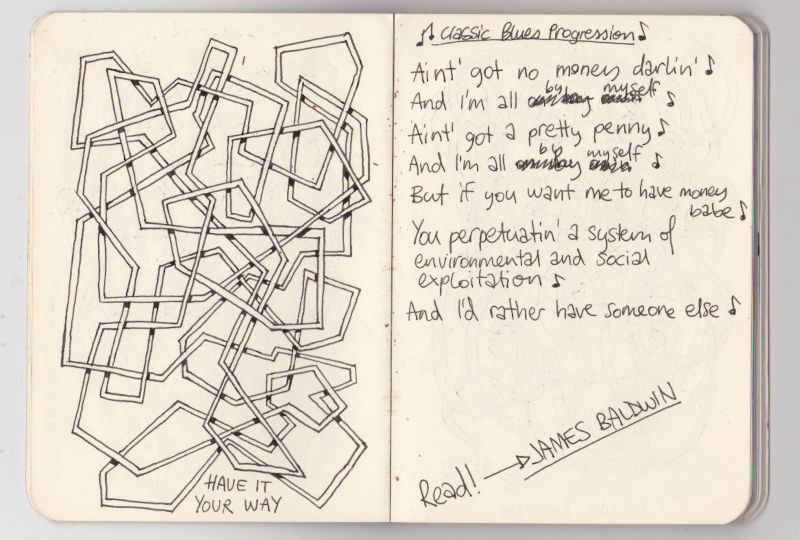 HAVE IT
YOUR WAY
♫ Classic Blues Progression ♪
Aint' got no money darlin' ♪
And I'm all by myself ♪
Aint' got a pretty penny ♪
And I'm all by myself ♪
But if you want me to have money
babe ♪
You perpetuatin' a system of
environmental and social
exploitation ♪
And I'd rather have someone else ♪
Read! → JAMES BALDWIN